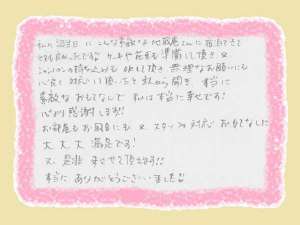 私の誕生日に こんな素敵な 地蔵庵さんに 宿泊できて
とても良かったです。ケーキや花束も準備して頂き 又
シャンパンの持ち込みも OKして頂き 無理なお願いにも
心良く 対応して頂いたと 夫から聞き 本当に
素敵な おもてなしで 私は本当に幸せです!
心から感謝します!!
お部屋もお風呂にも 又、スタッフの対応 おもてなしに
大大大 満足です!
又 是非 来させて頂きます!!
本当に ありがとうございました!!